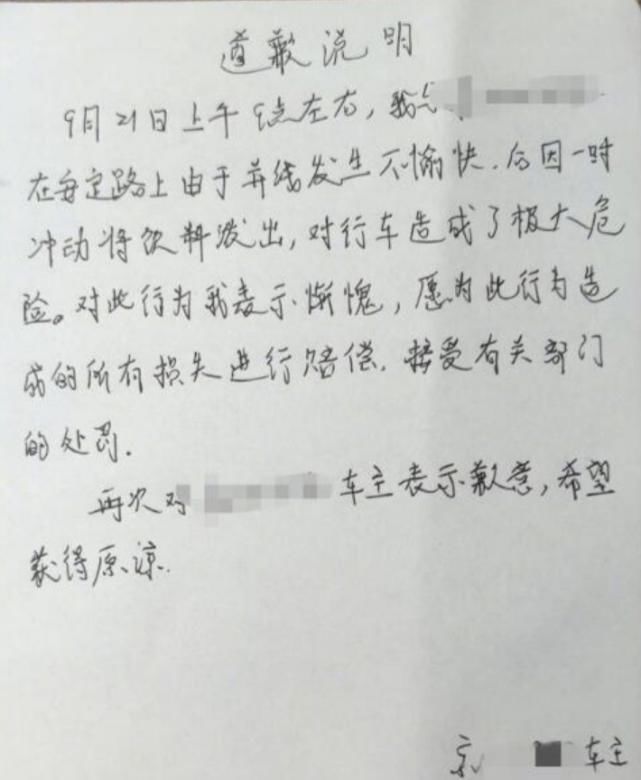 道歉说明
9月21日上午9点左右，我与
在安定路上由于并线发生不愉快.后因一时
冲动将饮料泼出，对行车造成了极大危
险。对此行为我表示惭愧，愿为此行为造
成的所有损失进行赔偿.接受有关部门
的处罚.
再次对 车主表示歉意，希望
获得原谅.
京 车主